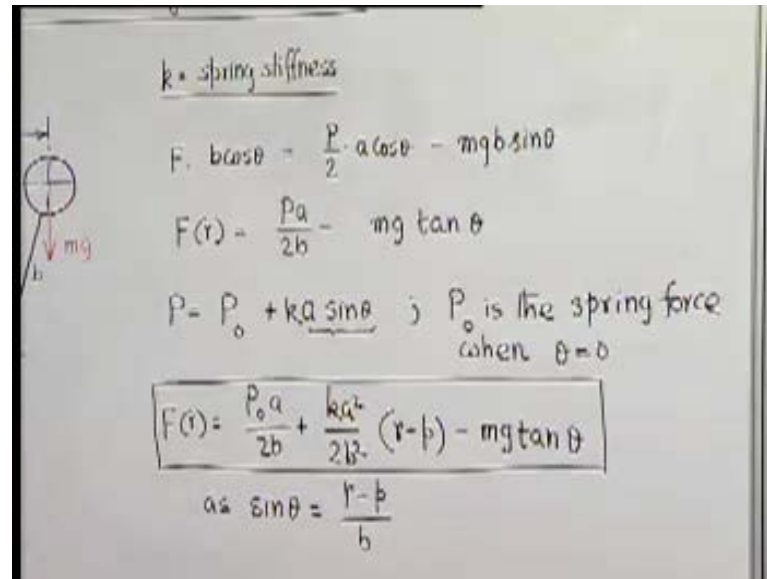 k = spring stiffness
F. bcosθ = P/2 . a cosθ - mgb sinθ
F(r) = Pa/2b - mg tan θ
mg
b
P = P₀ + ka sinθ ; P₀ is the spring force
when θ=0
F(r) = P₀a/2b + ka²/2b² (r-p) - mg tan θ
as sinθ = r-p/b